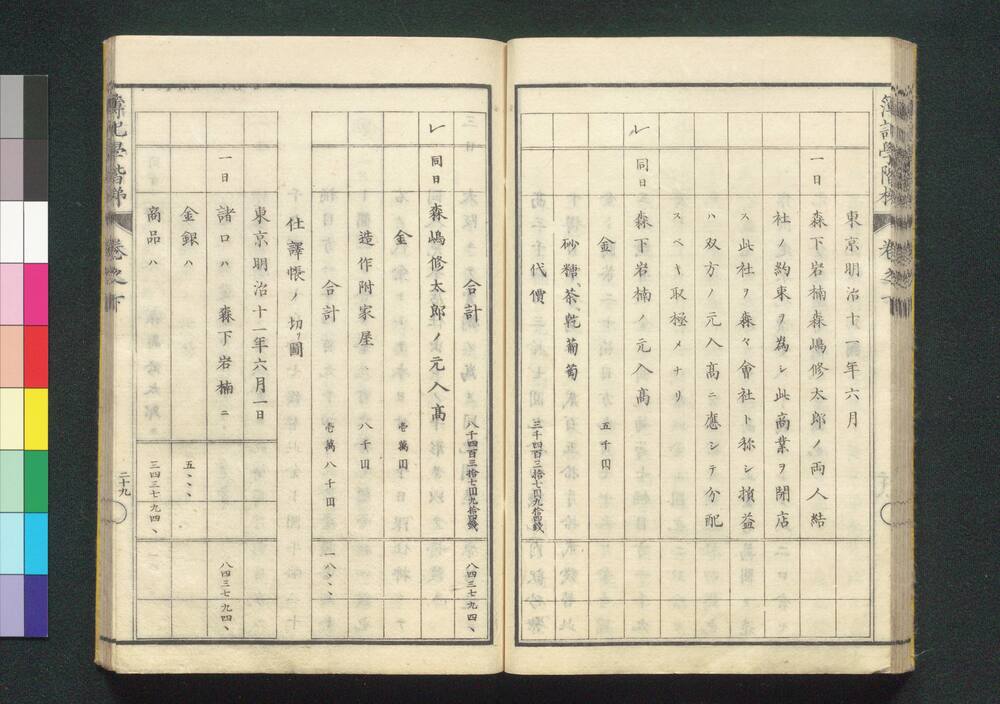 東京明治十一年六月
一日
森下岩楠森嶋修太郎ノ両人結
社ノ約束ヲ為シ此商業ヲ開店
ス此社ヲ森々會社ト称シ損益
ハ双方ノ元入高ニ應シテ分配
スベキ取極メナリ
レ
同日
森下岩楠ノ元入高
金
五千円
砂糖、茶、乾葡萄
代價
三千四百三拾七円九拾四銭
合計
八千四百三拾七円九拾四銭
八四三七九四、
レ
同日
森嶋修太郎ノ元入高
金
壱萬円
造作附家屋
八千円
合計
壱萬八千円
一八、、、
仕譯帳ノ切リ圖
東京明治十一年六月一日
一日
諸口ハ
森下岩楠ニ
八四三七九四、
金銀ハ
五、、、
商品ハ
三四三七九四、
簿記學階梯
卷之下
二十九